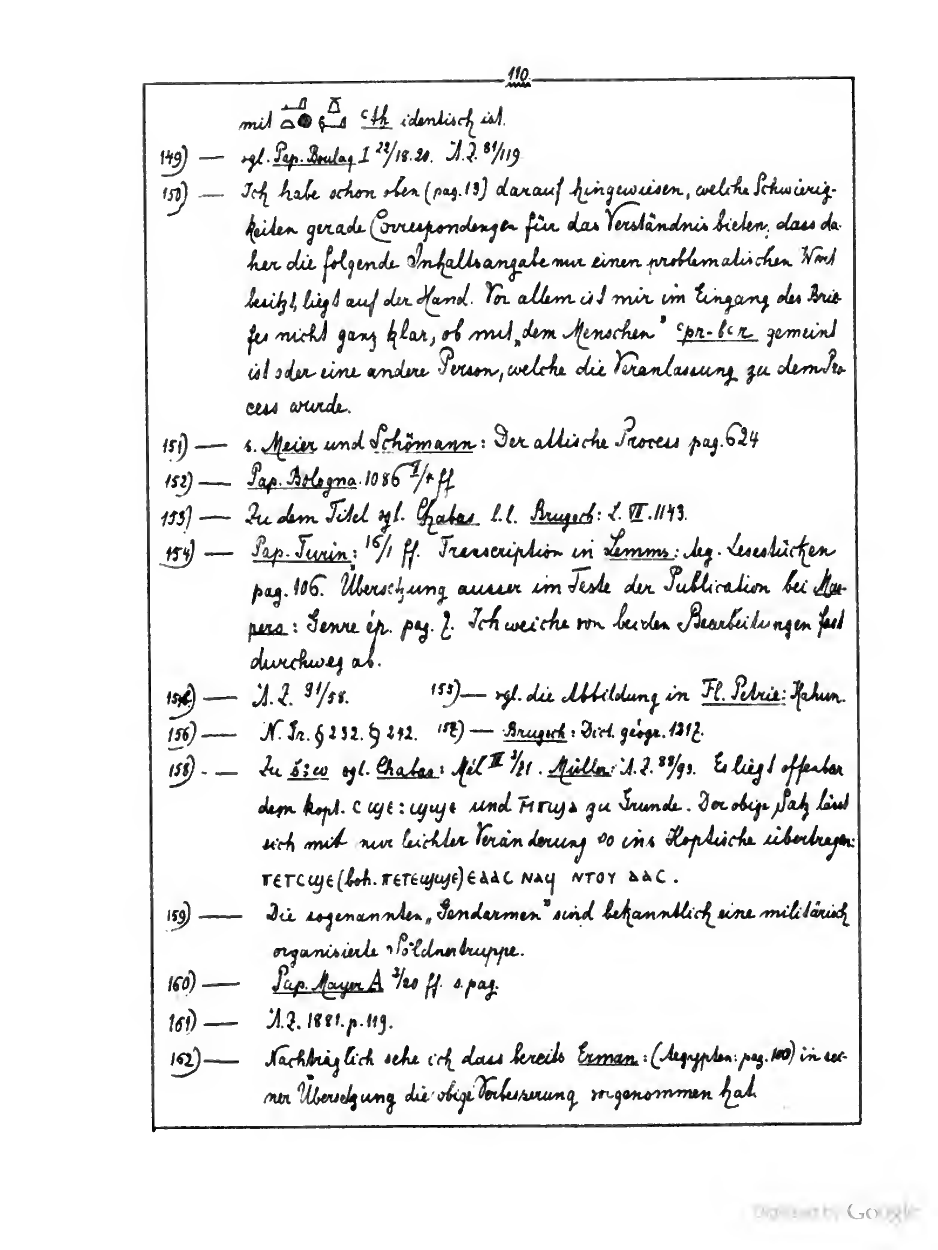 110.
mit ꜥth identisch ist.
149) — vgl. Pap. Boulaq I 22/18.20. Ä.Z. 81/119
150) — Ich habe schon oben (pag. 13) darauf hingewiesen, welche Schwierig-
keiten gerade Correspondenzen für das Verständnis bieten; dass da-
her die folgende Inhaltsangabe nur einen problematischen Wert
besitzt, liegt auf der Hand. Vor allem ist mir im Eingang des Brie-
fes nicht ganz klar, ob mit „dem Menschen" ꜥpr-bꜥr gemeint
ist oder eine andere Person, welche die Veranlassung zu dem Pro-
cess wurde.
151) — s. Meier und Schömann: Der attische Process pag. 624
152) — Pap. Bologna. 1086 ff
153) — Zu dem Titel vgl. Chabas l.l. Brugsch: L. VII. 1143.
154) — Pap. Turin: 16/1 ff. Transcription in Lemms: Aeg. Lesestücken
pag. 106. Übersetzung ausser im Texte der Publication bei Mas-
pero: Genre ép. pag. Ich weiche von beiden Bearbeitungen fast
durchweg ab.
— Ä.Z. 91/58. 155) — vgl. die Abbildung in Fl. Petrie: Kahun.
156) — N. Gr. § 232. § 242. 157) — Brugsch: Dict. géogr. 1217.
158) — Zu vgl. Chabas: Mél III 2/21. Müller: Ä.Z. 88/93. Es liegt offenbar
dem kopt. ⲥϣⲉ: ϣϣⲉ und zu Grunde. Der obige Satz lässt
sich mit nur leichter Veränderung so ins Koptische übertragen:
ⲡⲉⲧⲥϣⲉ (boh. ⲡⲉⲧⲉϣϣⲉ) ⲉⲁⲁⲥ ⲛⲁϥ ⲛⲧⲟϥ ⲁⲁⲥ.
159) — Die sogenannten „Gendarmen" sind bekanntlich eine militärisch
organisierte Söldnertruppe.
160) — Pap. Mayer A 3/20 ff. s. pag.
161) — Ä.Z. 1881. p. 119.
162) — Nachträglich sehe ich dass bereits Erman: (Aegypten: pag. 180) in sei-
ner Übersetzung die obige Verbesserung vorgenommen hat.
Digitized by Google